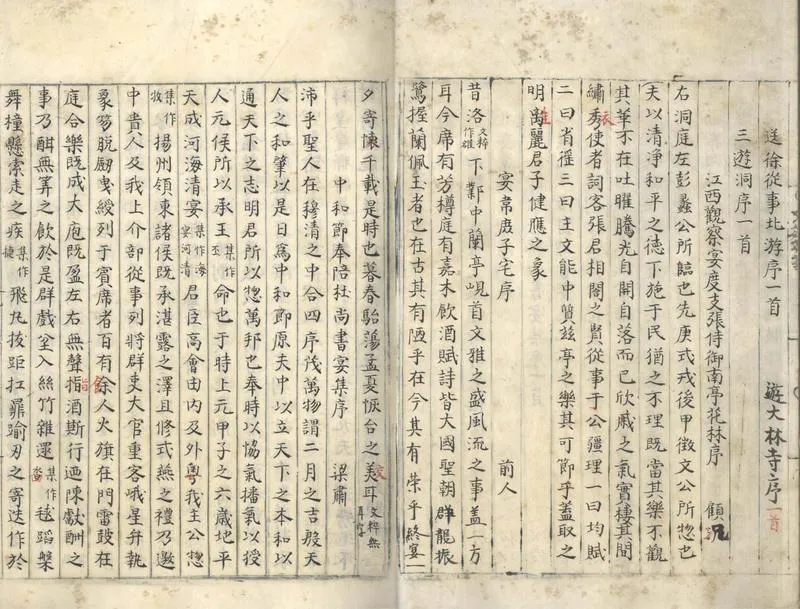 送徐從事北游序一首 遊大林寺序一首
三遊洞序一首
江西觀察宴度支張侍御南亭花林序 顧况
右洞庭左彭蠡公所臨也先庚式戎後甲徵文公所惣也
夫以清淨和平之德下施于民猶之不理既當其樂不觀
其華不在吐曜騰光自開自落而已欣戚之氣實棲其間
繡秀衣使者詞客張君相閤之賢從事于公疆理一曰均賦
二曰省徭三曰主文能中質兹亭之樂其可節乎蓋取之
明離麗君子健應之象
宴韋庶子宅序 前人
昔洛文粹作雄下鄴中蘭亭峴首文雅之盛風流之事盖一方
耳今席有芳樽庭有嘉木飲酒賦詩皆大國聖朝群龍振
鷺握蘭佩玉者也在古其有陋乎在今其有榮乎終宴一
夕寄懷千載是時也暮春駘蕩孟夏恢台之美耳文粹無耳字
中和節奉陪杜尚書宴集序 梁肅
沛乎聖人在穆清之中合四序茂萬物謂二月之吉殷天
人之和肇以是日為中和節原夫中以立天下之本和以
通天下之志明君所以惣萬邦也奉時以協氣播氣以授
人元侯所以承王集作丕命也于時上元甲子之六歲地平
天成河海清宴集作海宴河清君臣高會由内及外粤我主公惣
集作牧揚州領東諸侯既承湛露之澤且修式燕之禮乃邀
中貴人及我上介部從事列將群吏大官重客峨星弁執
象笏脱劒曳綬列于賓席者百有餘人火旗在門雷鼓在
庭合樂既成大庖既盈左右無聲指酒斯行迺陳獻酬之
事乃酣無筭之飲於是群戲坌入絲竹雜遝集作沓毬蹈盤
舞橦懸索走之疾集作捷飛丸拔距扛鼎踰刃之奇迭作於